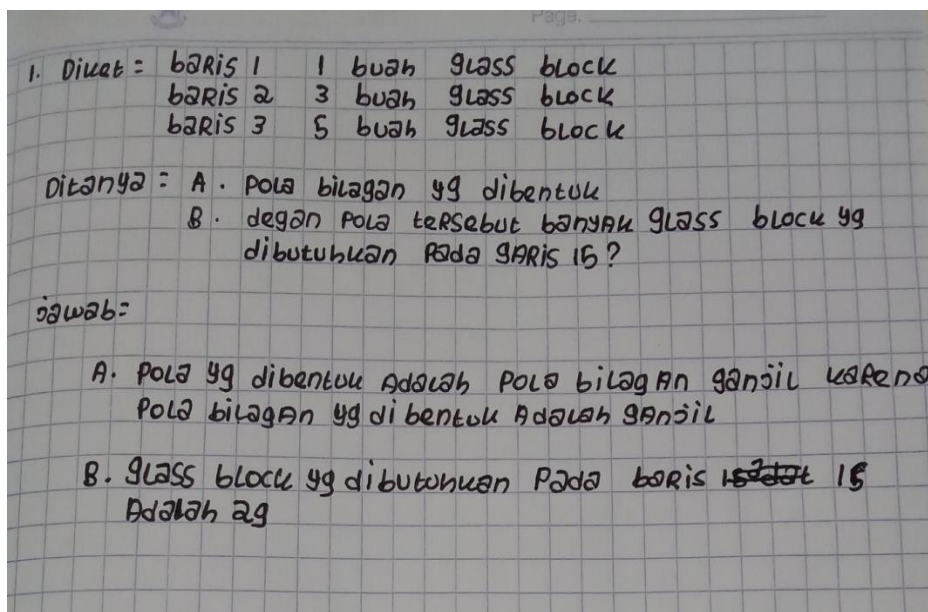 Page.
1. Diket = baRis 1 1 buah glass block
baRis 2 3 buah glass block
baRis 3 5 buah glass block
Ditanya = A. Pola bilagan yg dibentuk
B. degan Pola teRsebut banyAk glass block yg
dibutuhkan Pada gARis 15?
jawab=
A. Pola yg dibentuk Adalah Pola bilagAn ganjil kaRena
Pola bilagAn yg di bentuk Adalah gAnjil
B. glass block yg dibutuhkan Pada baRis 15
Adalah 29